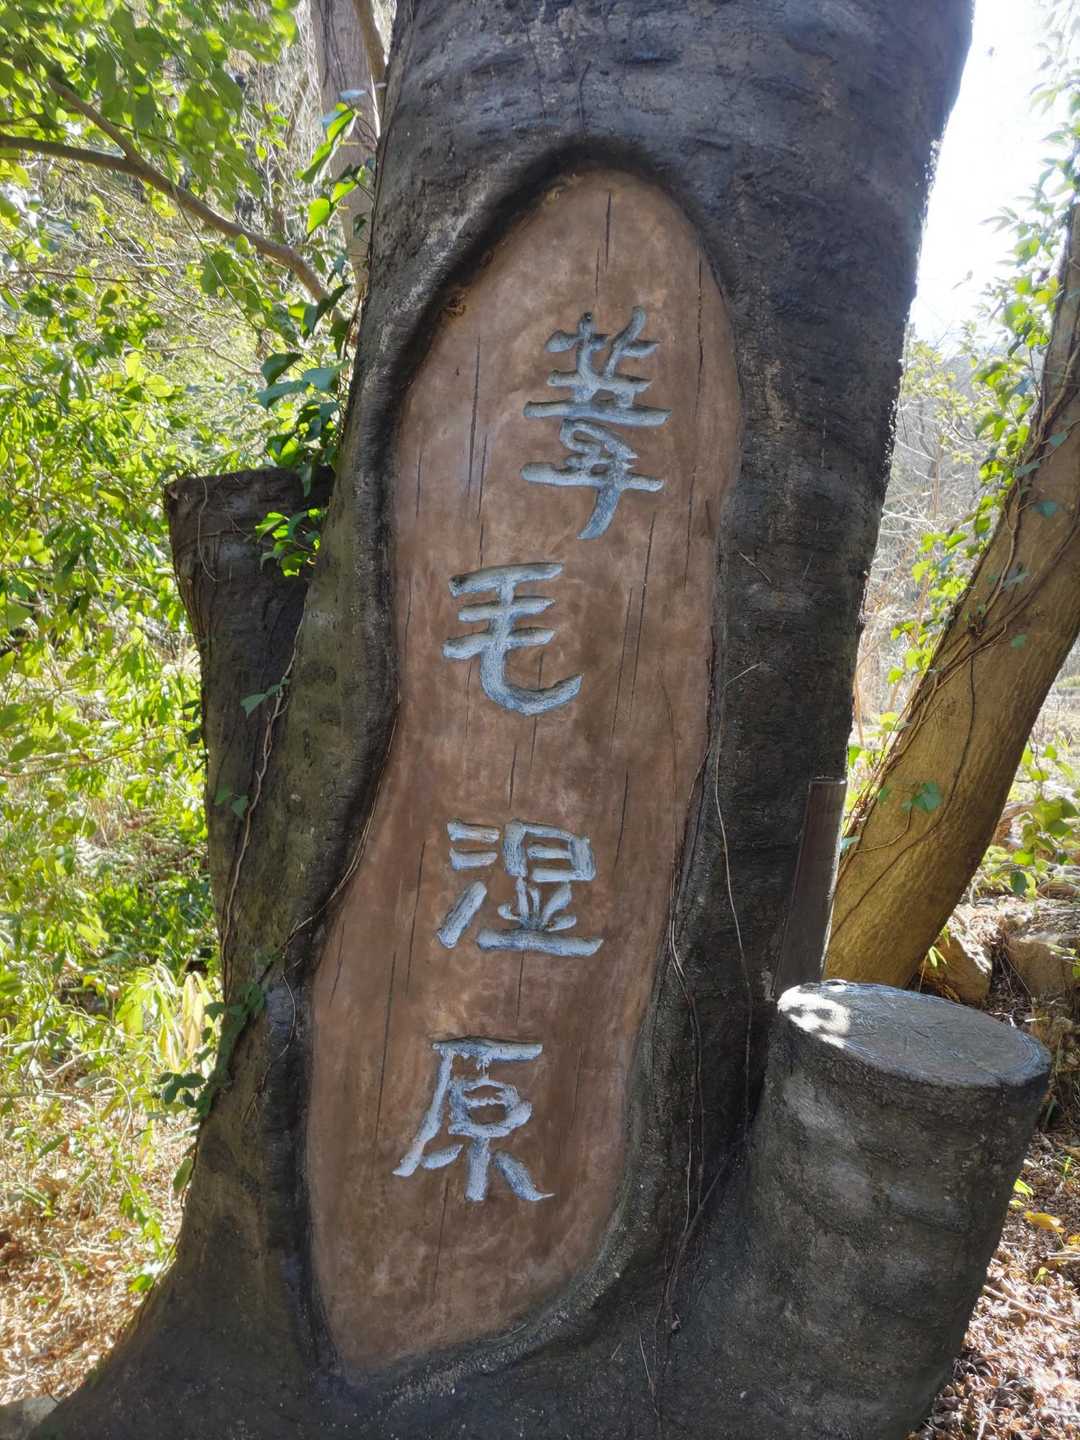 葦毛湿原